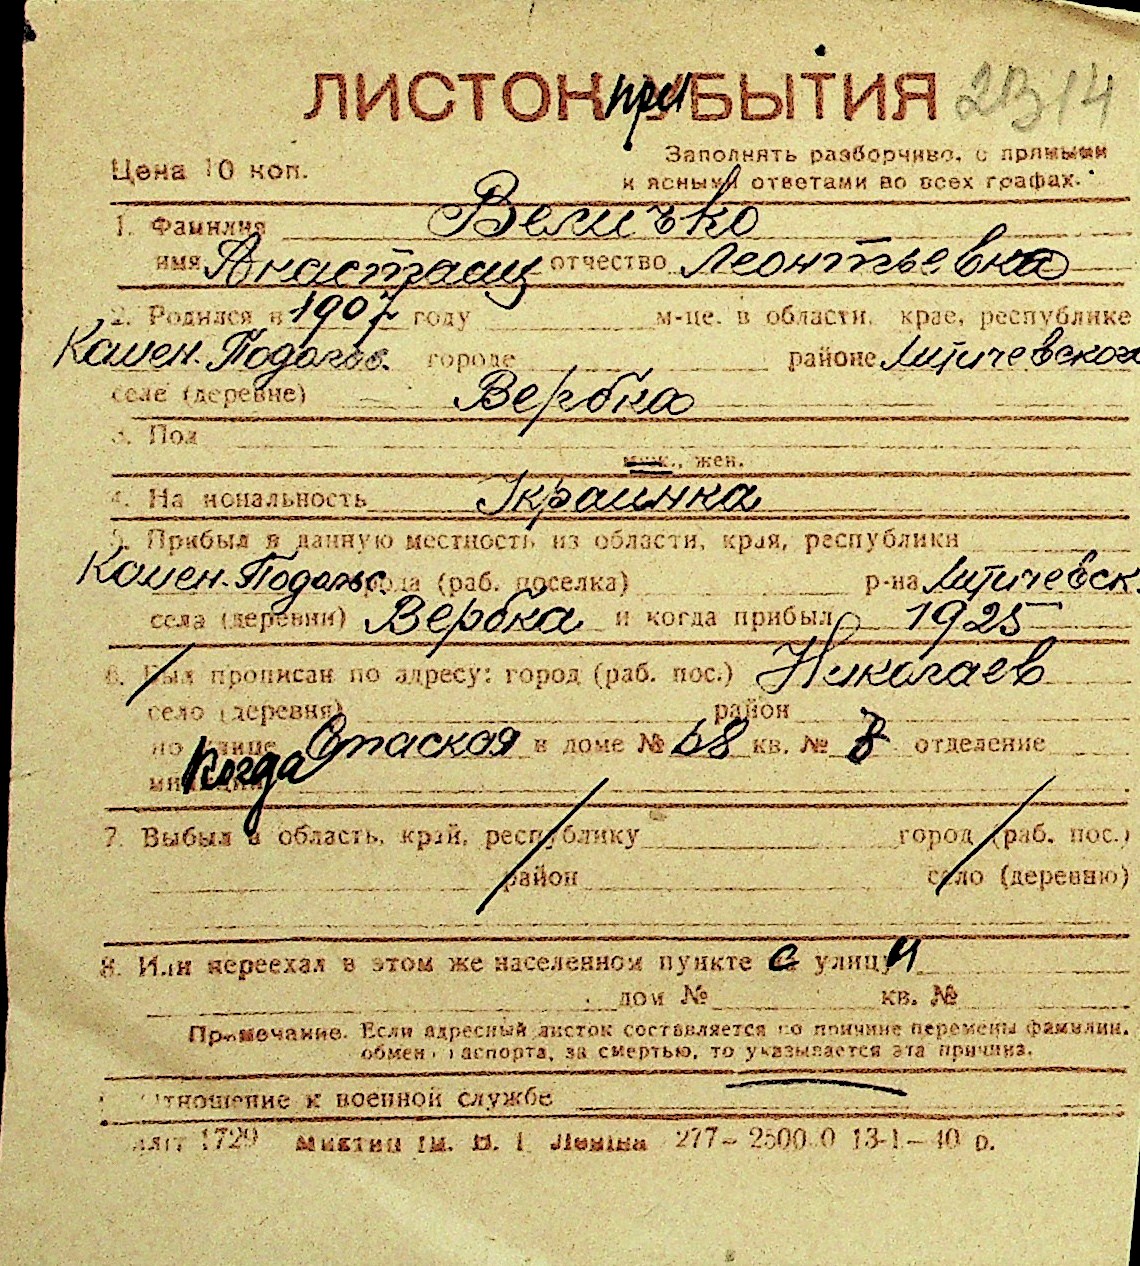 ЛИСТОК при УБЫТИЯ 2314
Цена 10 коп. Заполнять разборчиво, с прямыми
и ясными ответами во всех графах.
1. Фамилия Величко
имя Анастасия отчество Леонтьевна
2. Родился в 1907 году м-це. в области, крае, республике
Камен. Подольс. городе районе Литичевского
селе (деревне) Вербка
3. Пол
муж., жен.
4. Национальность Украинка
5. Прибыл в данную местность из области, края, республики
Камен. Подольс. города (раб. поселка) р-на Литичевск.
села (деревни) Вербка и когда прибыл 1925
6. Был прописан по адресу: город (раб. пос.) Николаев
село (деревня) район
по улице Спаская в доме № 68 кв. № 8 отделение
милиции Когда
7. Выбыл в область, край, республику город (раб. пос.)
район село (деревню)
8. Или переехал в этом же населенном пункте с улицы
дом № кв. №
Примечание. Если адресный листок составляется по причине перемены фамилии,
обмен паспорта, за смертью, то указывается эта причина.
Отношение к военной службе
1729 Миктип ім. В. І. Леніна 277— 2500 0 13-1—40 р.